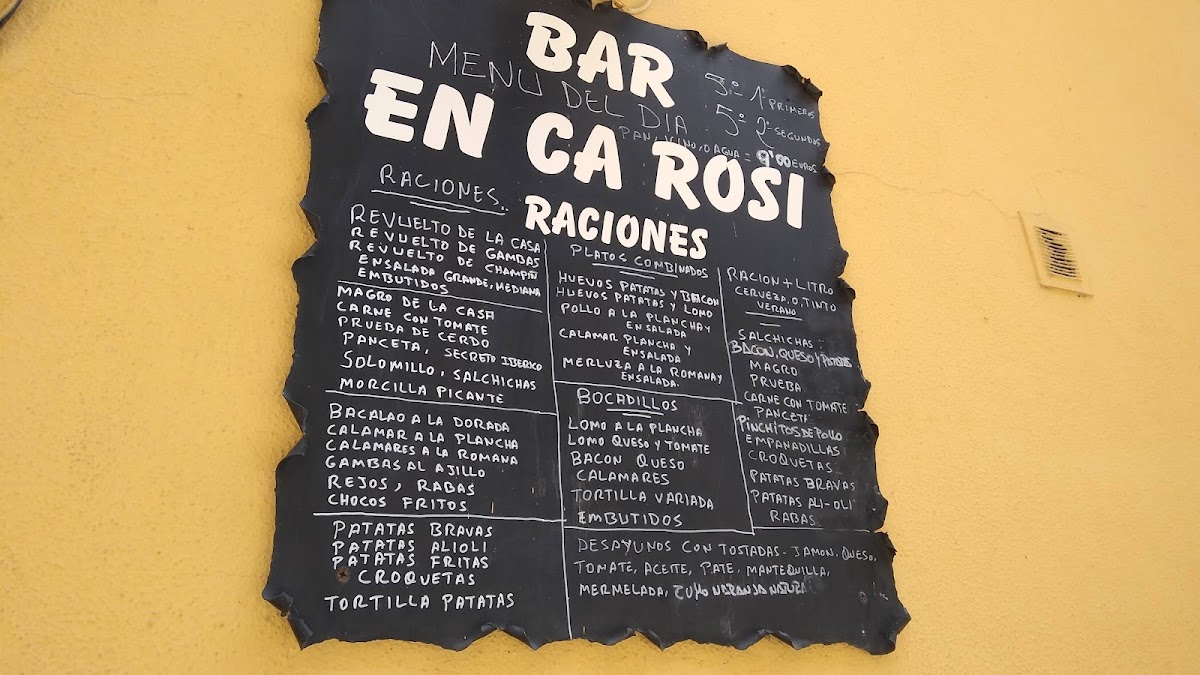 BAR
EN CA ROSI
RACIONES
MENU DEL DIA
5º- 1º PRIMEROS
5º 2º SEGUNDOS
PAN, VINO, O AGUA = 9'00 EUROS
RACIONES..
REVUELTO DE LA CASA
REVUELTO DE GAMBAS
REVUELTO DE CHAMPIÑ
ENSALADA GRANDE, MEDIANA
EMBUTIDOS
MAGRO DE LA CASA
CARNE CON TOMATE
PRUEBA DE CERDO
PANCETA, SECRETO IBERICO
SOLOMILLO, SALCHICHAS
MORCILLA PICANTE
BACALAO A LA DORADA
CALAMAR A LA PLANCHA
CALAMARES A LA ROMANA
GAMBAS AL AJILLO
REJOS, RABAS
CHOCOS FRITOS
PATATAS BRAVAS
PATATAS ALIOLI
PATATAS FRITAS
CROQUETAS
TORTILLA PATATAS
PLATOS COMBINADOS
HUEVOS PATATAS Y BACON
HUEVOS PATATAS Y LOMO
POLLO A LA PLANCHA Y
ENSALADA
CALAMAR PLANCHA Y
ENSALADA
MERLUZA A LA ROMANA Y
ENSALADA.
BOCADILLOS
LOMO A LA PLANCHA
LOMO QUESO Y TOMATE
BACON QUESO
CALAMARES
TORTILLA VARIADA
EMBUTIDOS
RACION + LITRO
CERVEZA, O, TINTO
VERANO
SALCHICHAS
BACON, QUESO Y PATATAS
MAGRO
PRUEBA
CARNE CON TOMATE
PANCETA
PINCHITOS DE POLLO
EMPANADILLAS
CROQUETAS
PATATAS BRAVAS
PATATAS ALI-OLI
RABAS
DESAYUNOS CON TOSTADAS. JAMON. QUESO,
TOMATE, ACEITE, PATE, MANTEQUILLA,
MERMELADA, ZUMO NARANJA